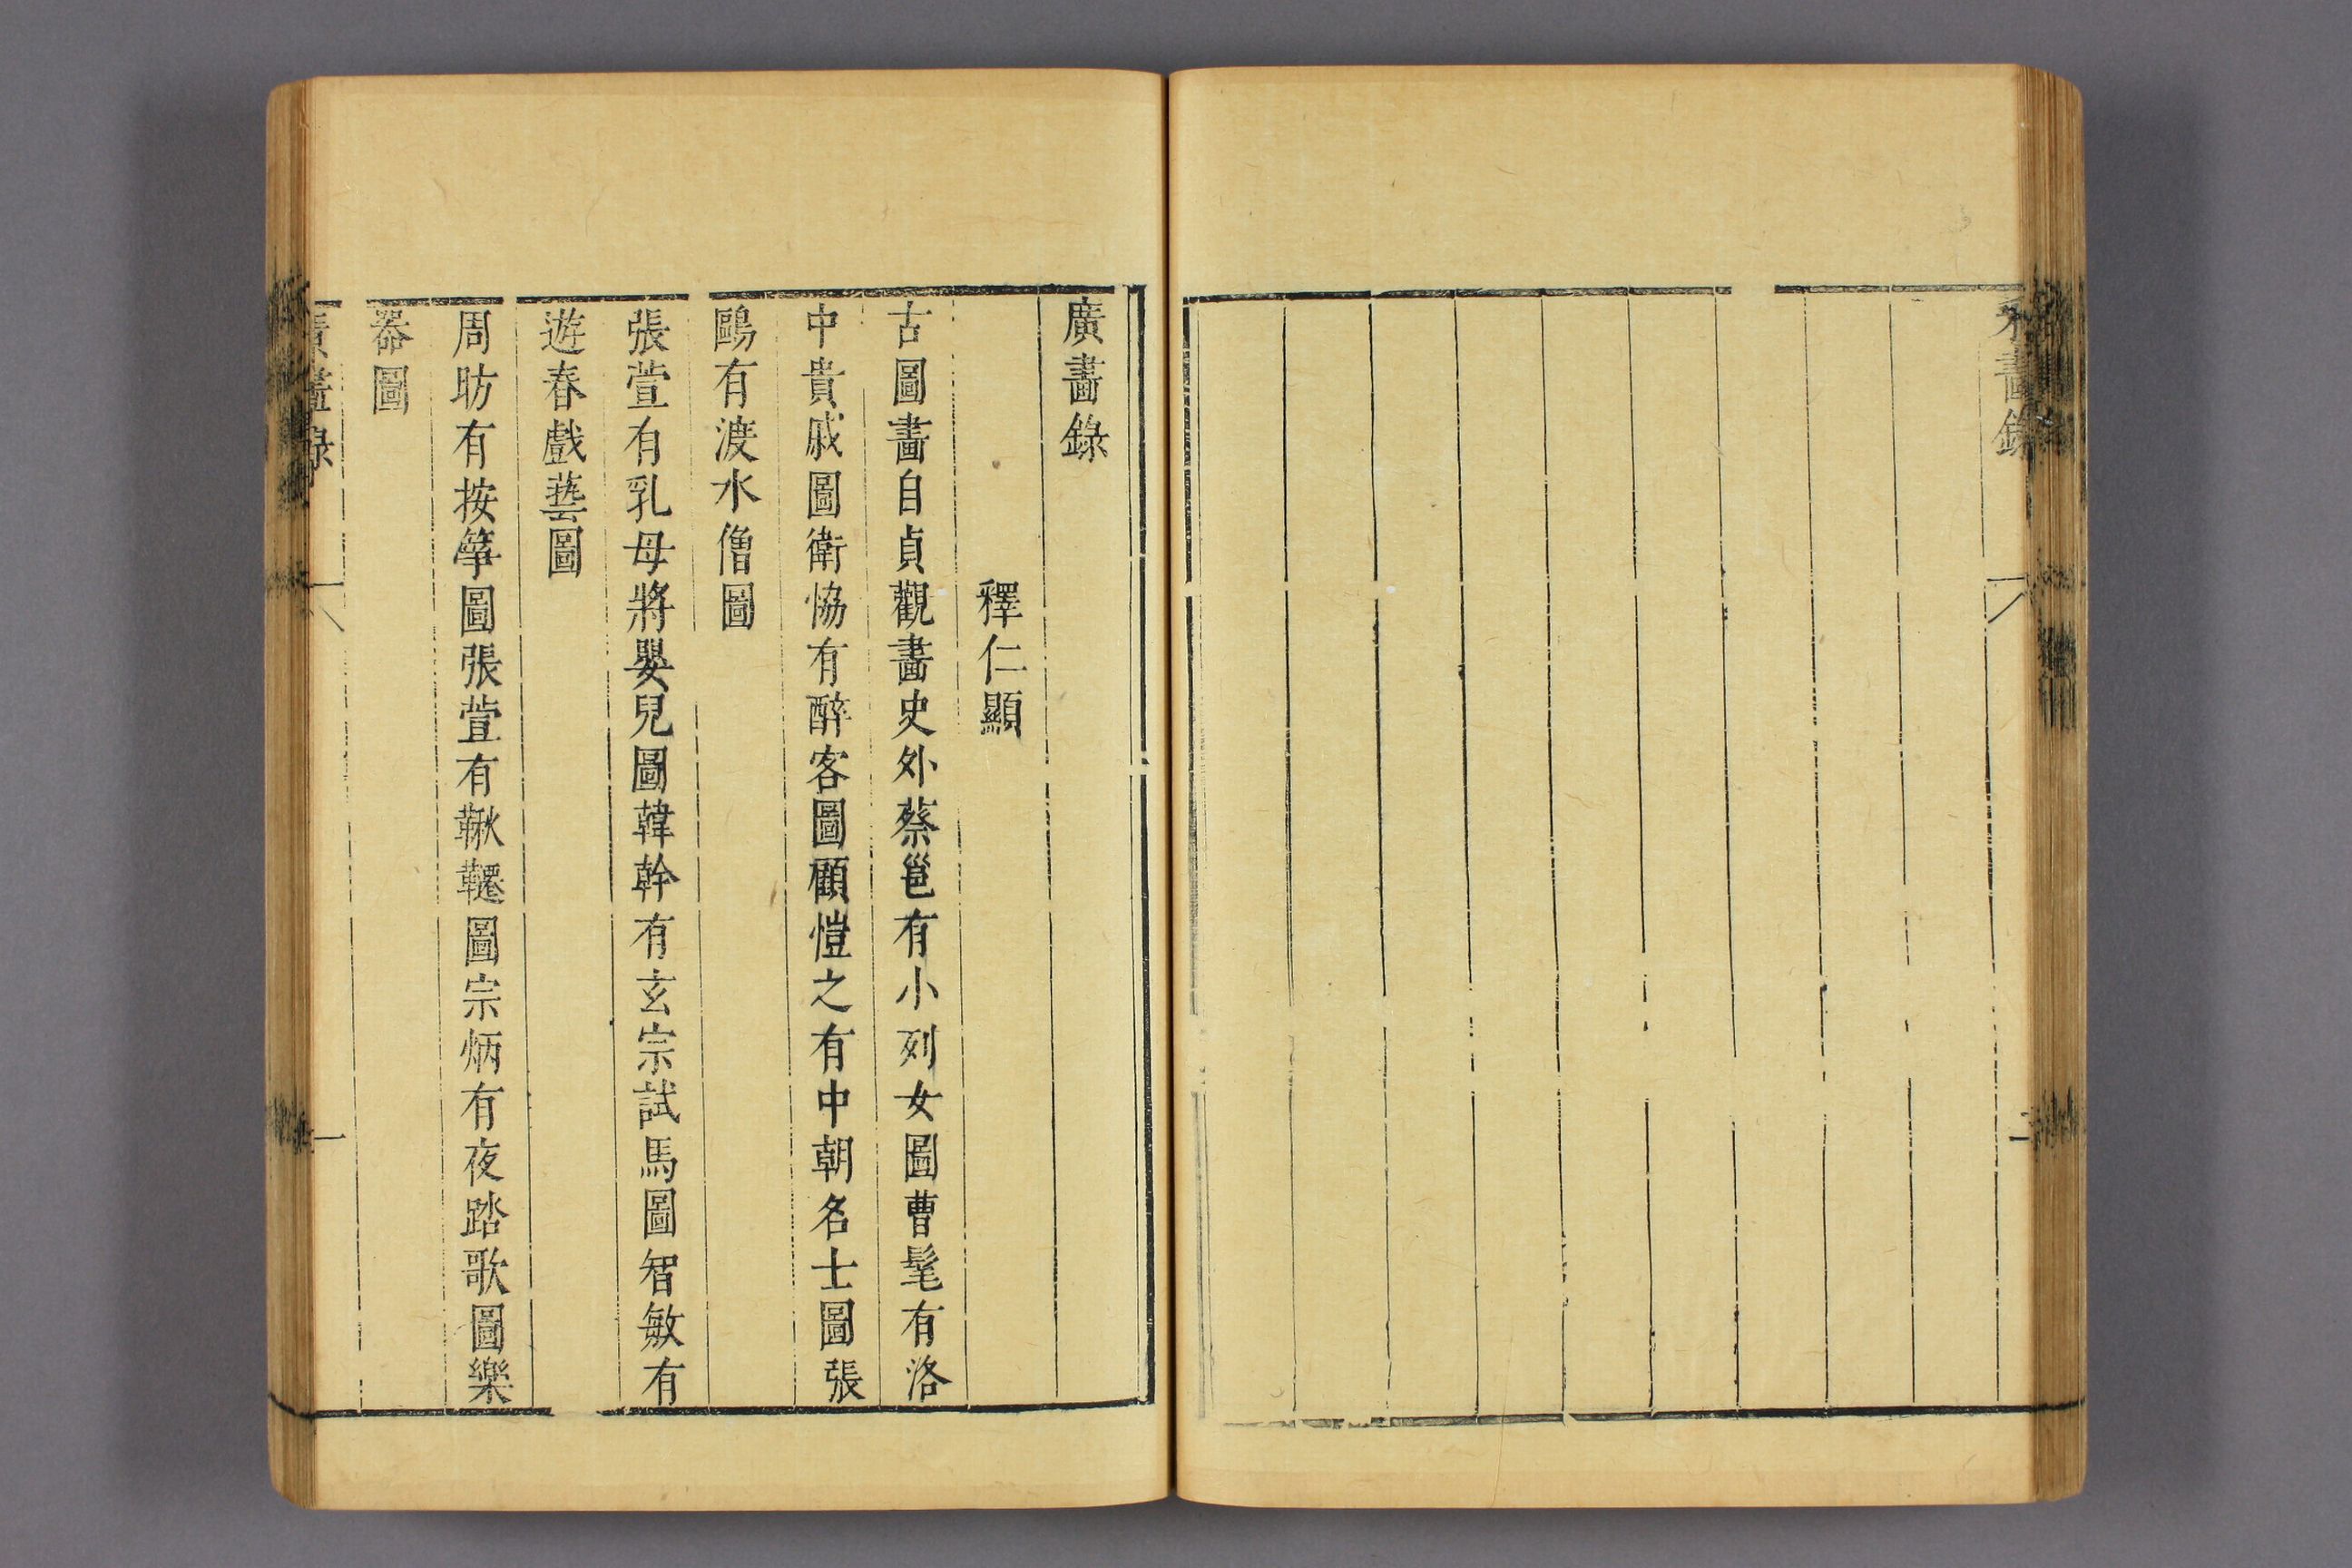 畫錄
廣畫錄
釋仁顯
古圖畫自貞觀畫史外蔡邕有小列女圖曹髦有洛
中貴戚圖衛恊有醉客圖顧愷之有中朝名士圖張
鷗有渡水僧圖
張萱有乳母將嬰兒圖韓幹有玄宗試馬圖智敏有
遊春戲藝圖
周昉有按箏圖張萱有鞦韆圖宗炳有夜踏歌圖樂
器圖
廣畫錄
一